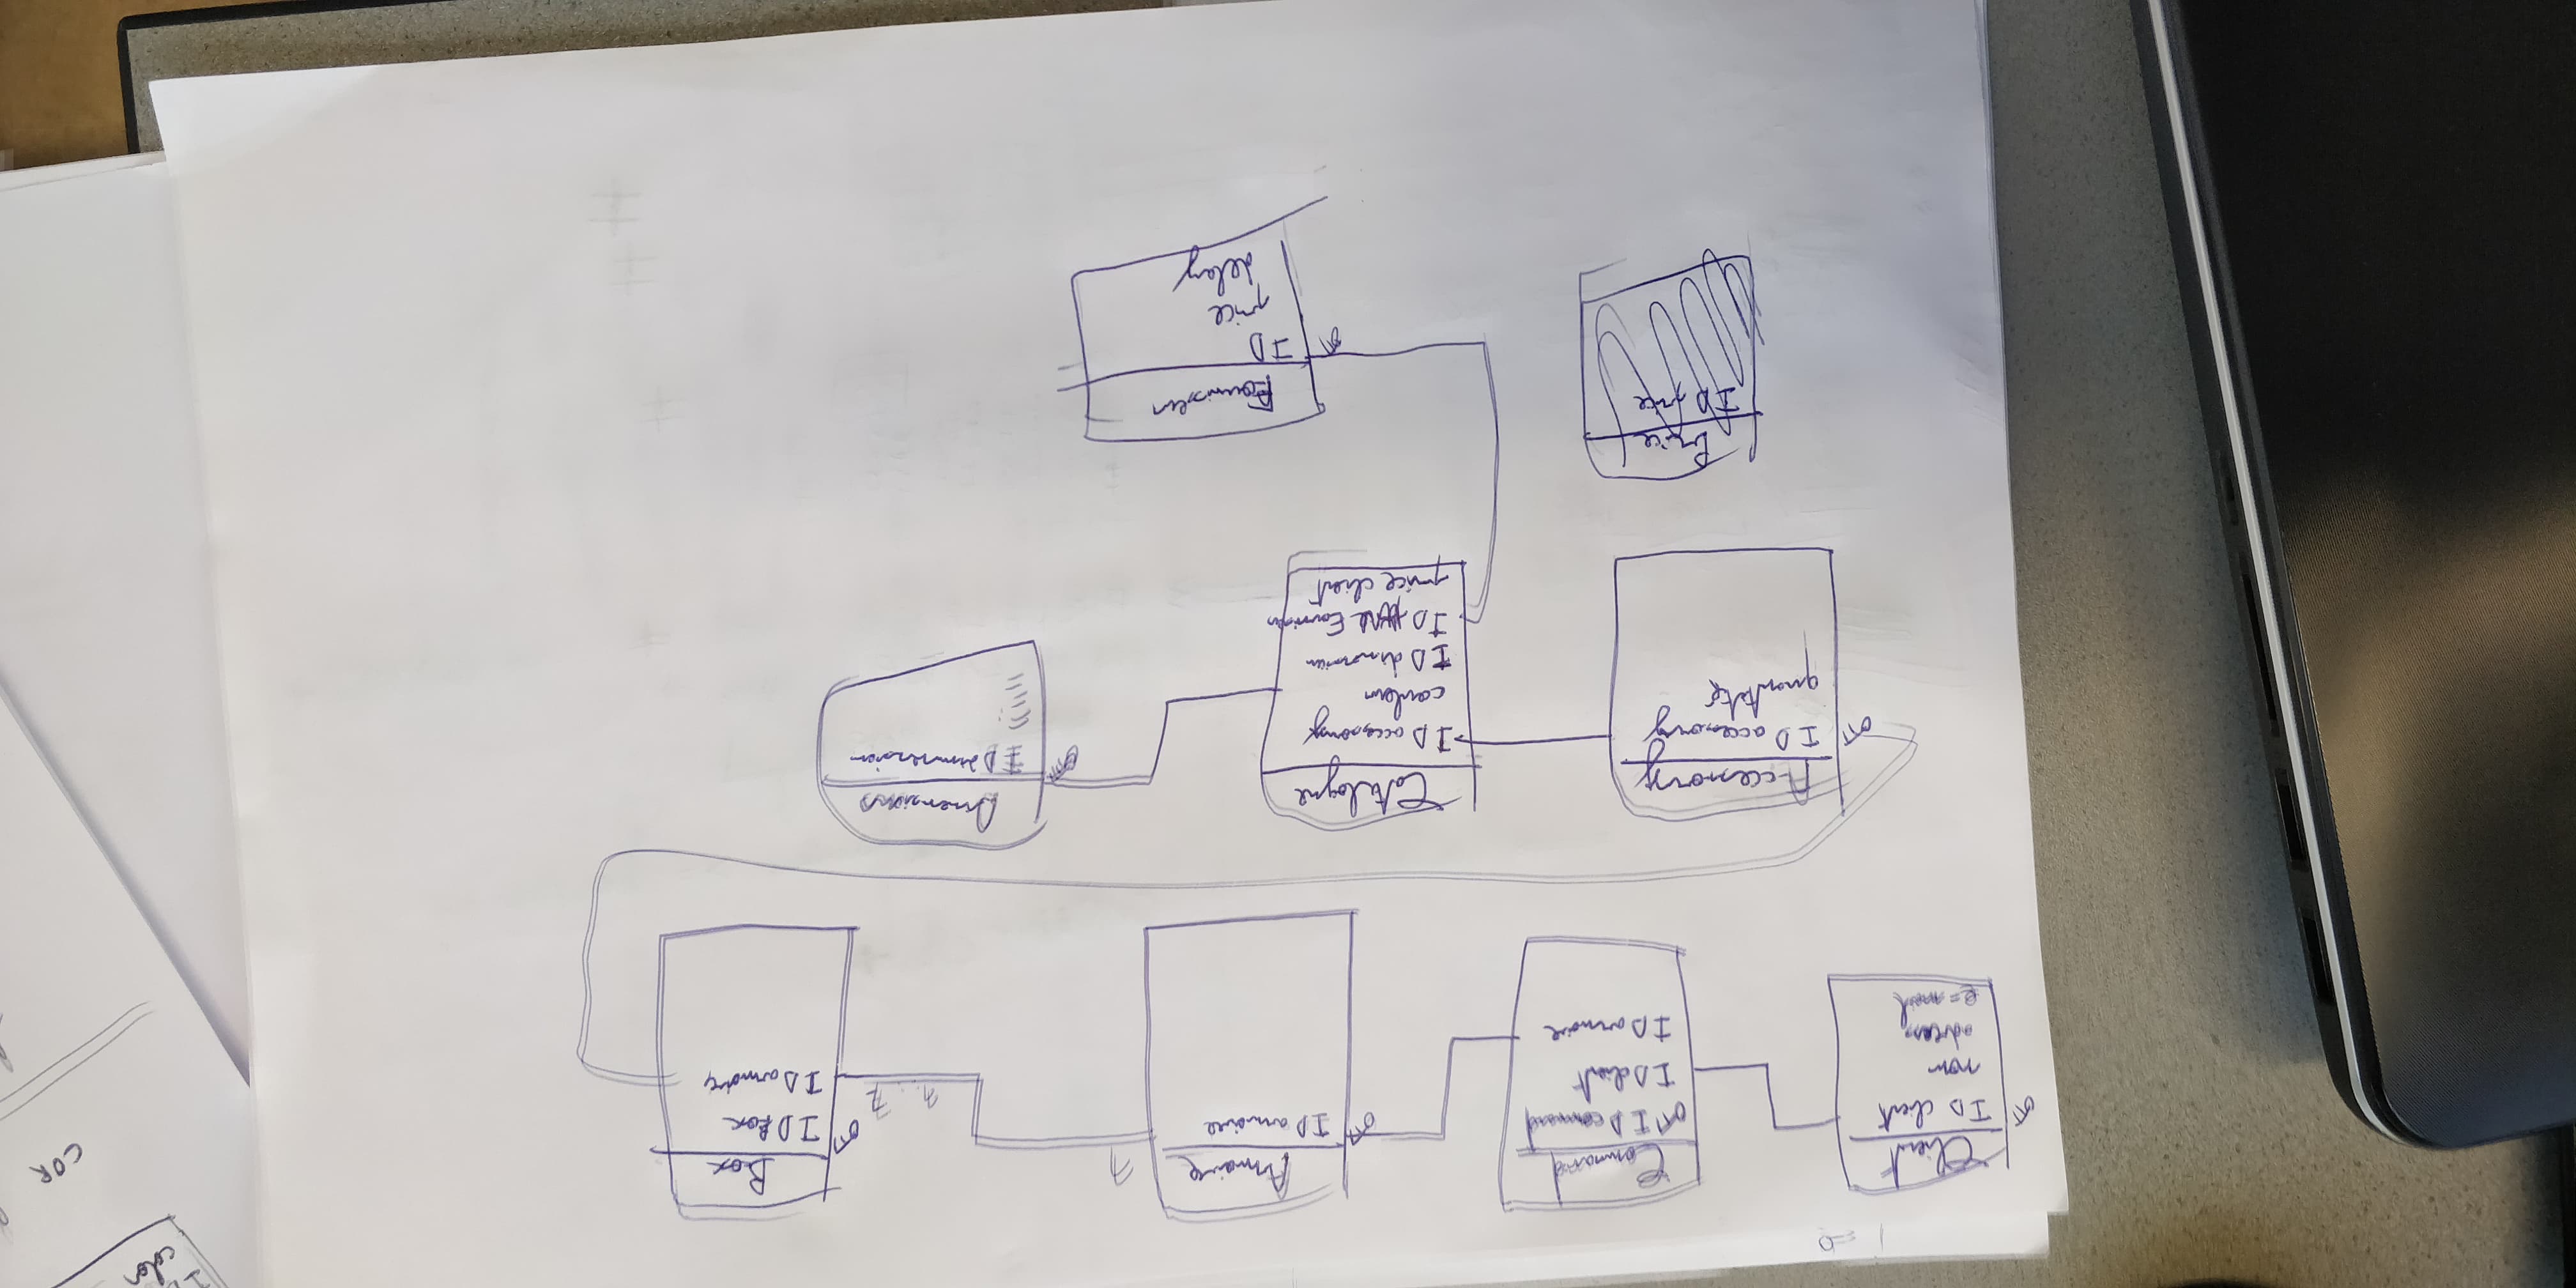 1 = 0
Client
ID client
nom
adress
e-mail
Command
ID command
ID client
ID armoire
Armoire
ID armoire
1
1..7
Box
ID Box
ID armoire
Accessory
ID accessory
quantité
Catalogue
ID accessory
couleur
ID dimension
ID Fournisseur
price client
Dimensions
ID dimension
Price
ID price
Fournisseur
ID
price
delay
color
COR